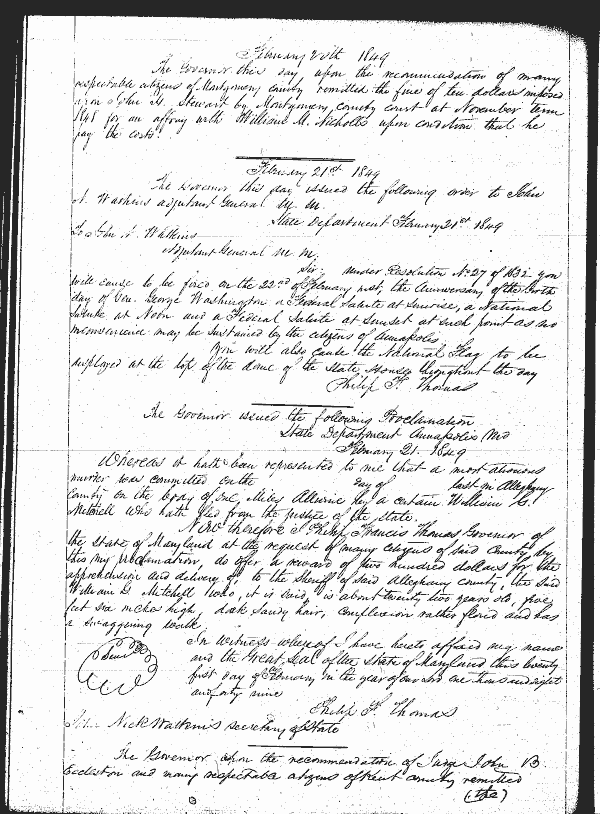 February 20th 1849
The Governor this day upon the recommendation of many
respectable citizens of Montgomery county remitted the fine of ten dollars imposed
upon John H. Stewart by Montgomery county court at November term
1848 for an affray with William M. Nicholls upon condition that he
pay the costs.
February 21st 1849
The Governor this day issued the following order to John
N. Watkins adjutant General M. M.
State Department February 21st 1849
To John N. Watkins
Adjutant General M. M.
Sir, under Resolution No 27 of 1832 you
will cause to be fired on the 22nd of February inst, the anniversary of the birth
day of Gen. George Washington a Federal Salute at Sunrise, a National
Salute at Noon and a Federal Salute at Sunset at such point as no
inconvenience may be sustained by the citizens of Annapolis
You will also cause the National Flag to be
displayed at the top of the dome of the State House throughout the day
Philip F. Thomas
The Governor issued the following Proclamation
State Department Annapolis Md
February 21. 1849
Whereas it hath been represented to me that a most atrocious
murder was committed on the day of last in Allegheny
County on the body of one Miles by a certain William G.
Mitchell who hath fled from the justice of the State.
Now therefore I Philip Francis Thomas Governor of
the State of Maryland at the request of many citizens of said County, by
this my proclamation, do offer a reward of two hundred dollars for the
apprehension and delivery of to the Sheriff of said Allegheny county, the said
William G. Mitchell who, it is said, is about twenty two years old, five
feet six inches high, dark sandy hair, complexion rather florid and has
a swaggering walk.
In witness whereof I have hereto affixed my name
and the Great Seal of the State of Maryland this twenty
first day of February in the year of our Lord one thousand eight
and forty nine
Philip F. Thomas
Nick Watkins Secretary of State
The Governor upon the recommendation of Judge John B
Eccleston and many respectable citizens of Kent county remitted
(the)